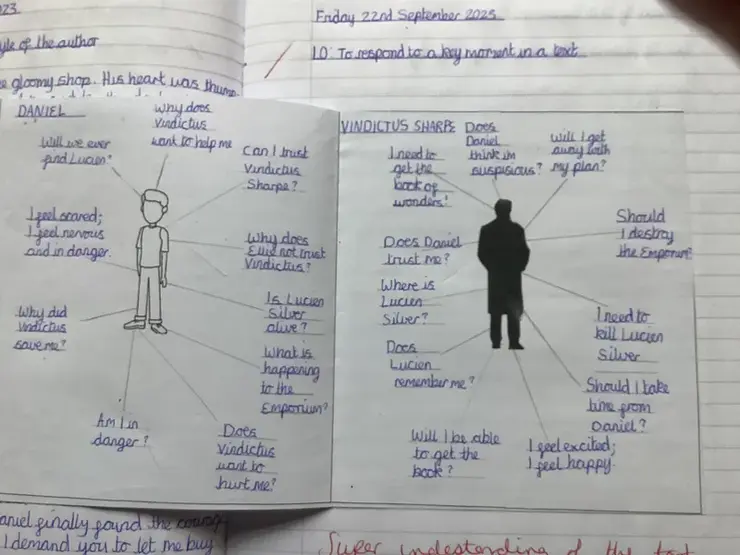 23
yle of the author
e gloomy shop. His heart was thump
Friday 22nd September 2023
LO: To respond to a key moment in a text
DANIEL
Will we ever
find Lucien?
Why does
Vindictus
want to help me
Can I trust
Vindictus
Sharpe?
I feel scared;
I feel nervous
and in danger.
Why does
Ellie not trust
Vindictus?
Is Lucien
Silver
alive?
Why did
Vindictus
save me?
What is
happening
to the
Emporium?
Am I in
danger?
Does
Vindictus
want to
hurt me?
VINDICTUS SHARPE
I need to
get the
book of
wonders!
Does
Daniel
think im
suspisious?
Will I get
away with
my plan?
Does Daniel
trust me?
Should
I destroy
the Emporium?
Where is
Lucien
Silver?
I need to
kill Lucien
Silver
Does
Lucien
remember me?
Should I take
time from
Daniel?
Will I be able
to get the
book?
I feel excited;
I feel happy.
aniel finally found the
I demand you to let me buy
Super understanding of the text